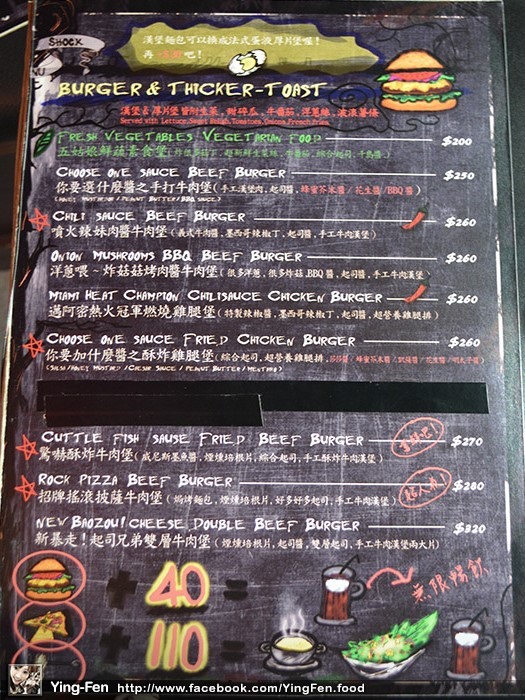 SHOCK
漢堡麵包可以換成法式蛋液厚片堡喔!
再
吧!
BURGER & THICKER-TOAST
漢堡&厚片堡皆附生菜,甜碎瓜,牛番茄,洋蔥絲,波浪薯條
Served with Lettuce, Sweet Relish, Tomatoes, Onions, French Fries
FRESH VEGETABLES VEGETARIAN FOOD $200
五姑娘鮮蔬素食堡
CHOOSE ONE SAUCE BEEF BURGER $250
你要選什麼醬之手打牛肉堡(手工漢堡肉,起司醬,蜂蜜芥末醬/花生醬/BBQ醬)
(HONEY MUSTARD/PEANUT BUTTER/BBQ SAUCE)
CHILI SAUCE BEEF BURGER $260
噴火辣妹肉醬牛肉堡(義式牛肉醬,墨西哥辣椒丁,起司醬,手工牛肉漢堡)
ONION MUSHROOMS BBQ BEEF BURGER $260
洋蔥喂~炸菇菇烤肉醬牛肉堡(很多洋蔥,很多炸菇,BBQ醬,起司醬,手工牛肉漢堡)
MIAMI HEAT CHAMPION CHILISAUCE CHICKEN BURGER $260
邁阿密熱火冠軍燃燒雞腿堡(特製辣椒醬,墨西哥辣椒丁,起司醬,超營養雞腿排)
CHOOSE ONE SAUCE FRIED CHICKEN BURGER $260
你要加什麼醬之酥炸雞腿堡(綜合起司,超營養雞腿排,莎莎醬/蜂蜜芥末醬/凱薩醬/花生醬/明太子醬)
(SALSA/HONEY MUSTARD/CAESAR SAUCE/PEANUT BUTTER/MENTAIKO)
CUTTLE FISH SAUSE FRIED BEEF BURGER $270
驚嚇酥炸牛肉堡(威尼斯墨魚醬,煙燻培根片,綜合起司,手工酥炸牛肉漢堡)
ROCK PIZZA BEEF BURGER $280
招牌搖滾披薩牛肉堡(焗烤麵包,煙燻培根片,好多好多起司,手工牛肉漢堡)
NEW BAOZOU! CHEESE DOUBLE BEEF BURGER $320
新暴走!起司兄弟雙層牛肉堡(煙燻培根片,起司醬,雙層起司,手工牛肉漢堡兩大片)
+ 40 =
無限暢飲
+ 110 =
Ying-Fen http://www.facebook.com/YingFen.food